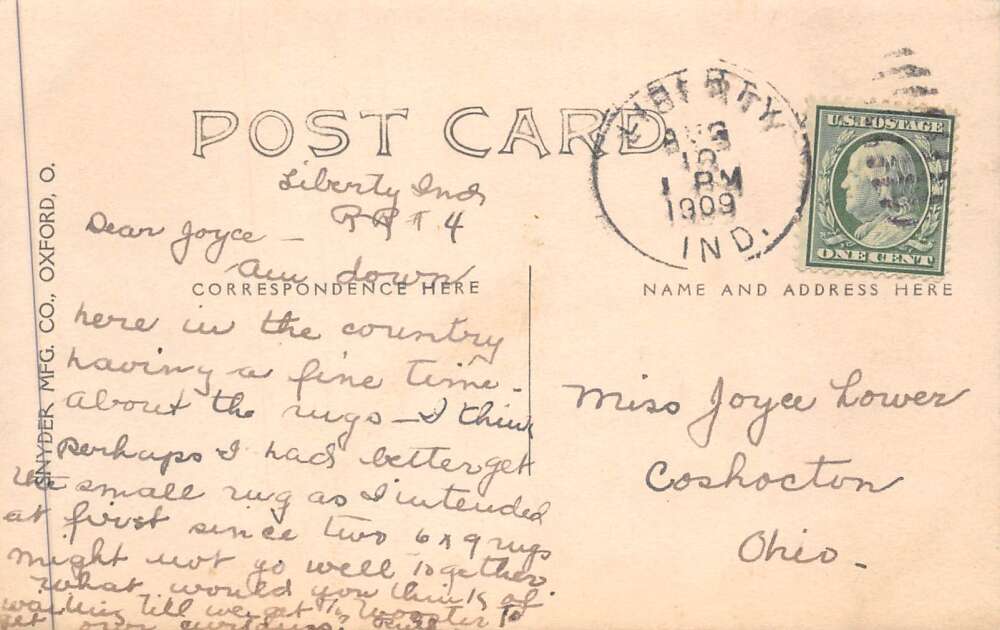 POST CARD
LIBERTY
AUG
18
1 PM
1909
IND.
U.S. POSTAGE
ONE CENT
SNYDER MFG. CO., OXFORD, O.
CORRESPONDENCE HERE
NAME AND ADDRESS HERE
Liberty Ind
RR # 4
Dear Joyce —
Am down
here in the country
having a fine time -
about the rugs — I think
perhaps I had better get
the small rug as I intended
at first since two 6 x 9 rugs
might not go well together.
what would you think of
waiting till we get to Wooster to
get our curtains.
Miss Joyce Lower
Coshocton
Ohio.